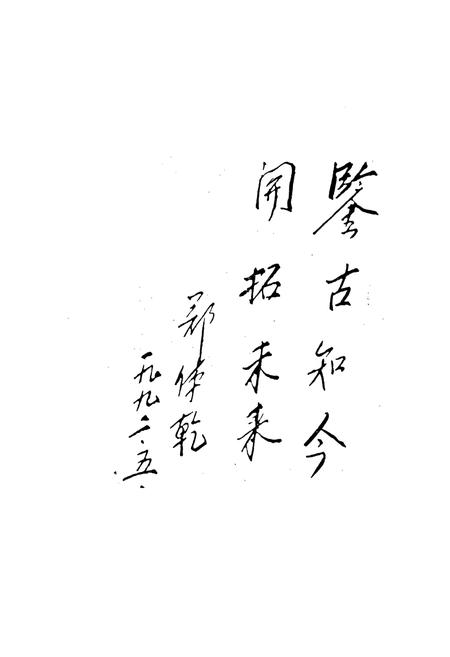 鑒古知今
開拓未来
郑体乾
一九九二·五·